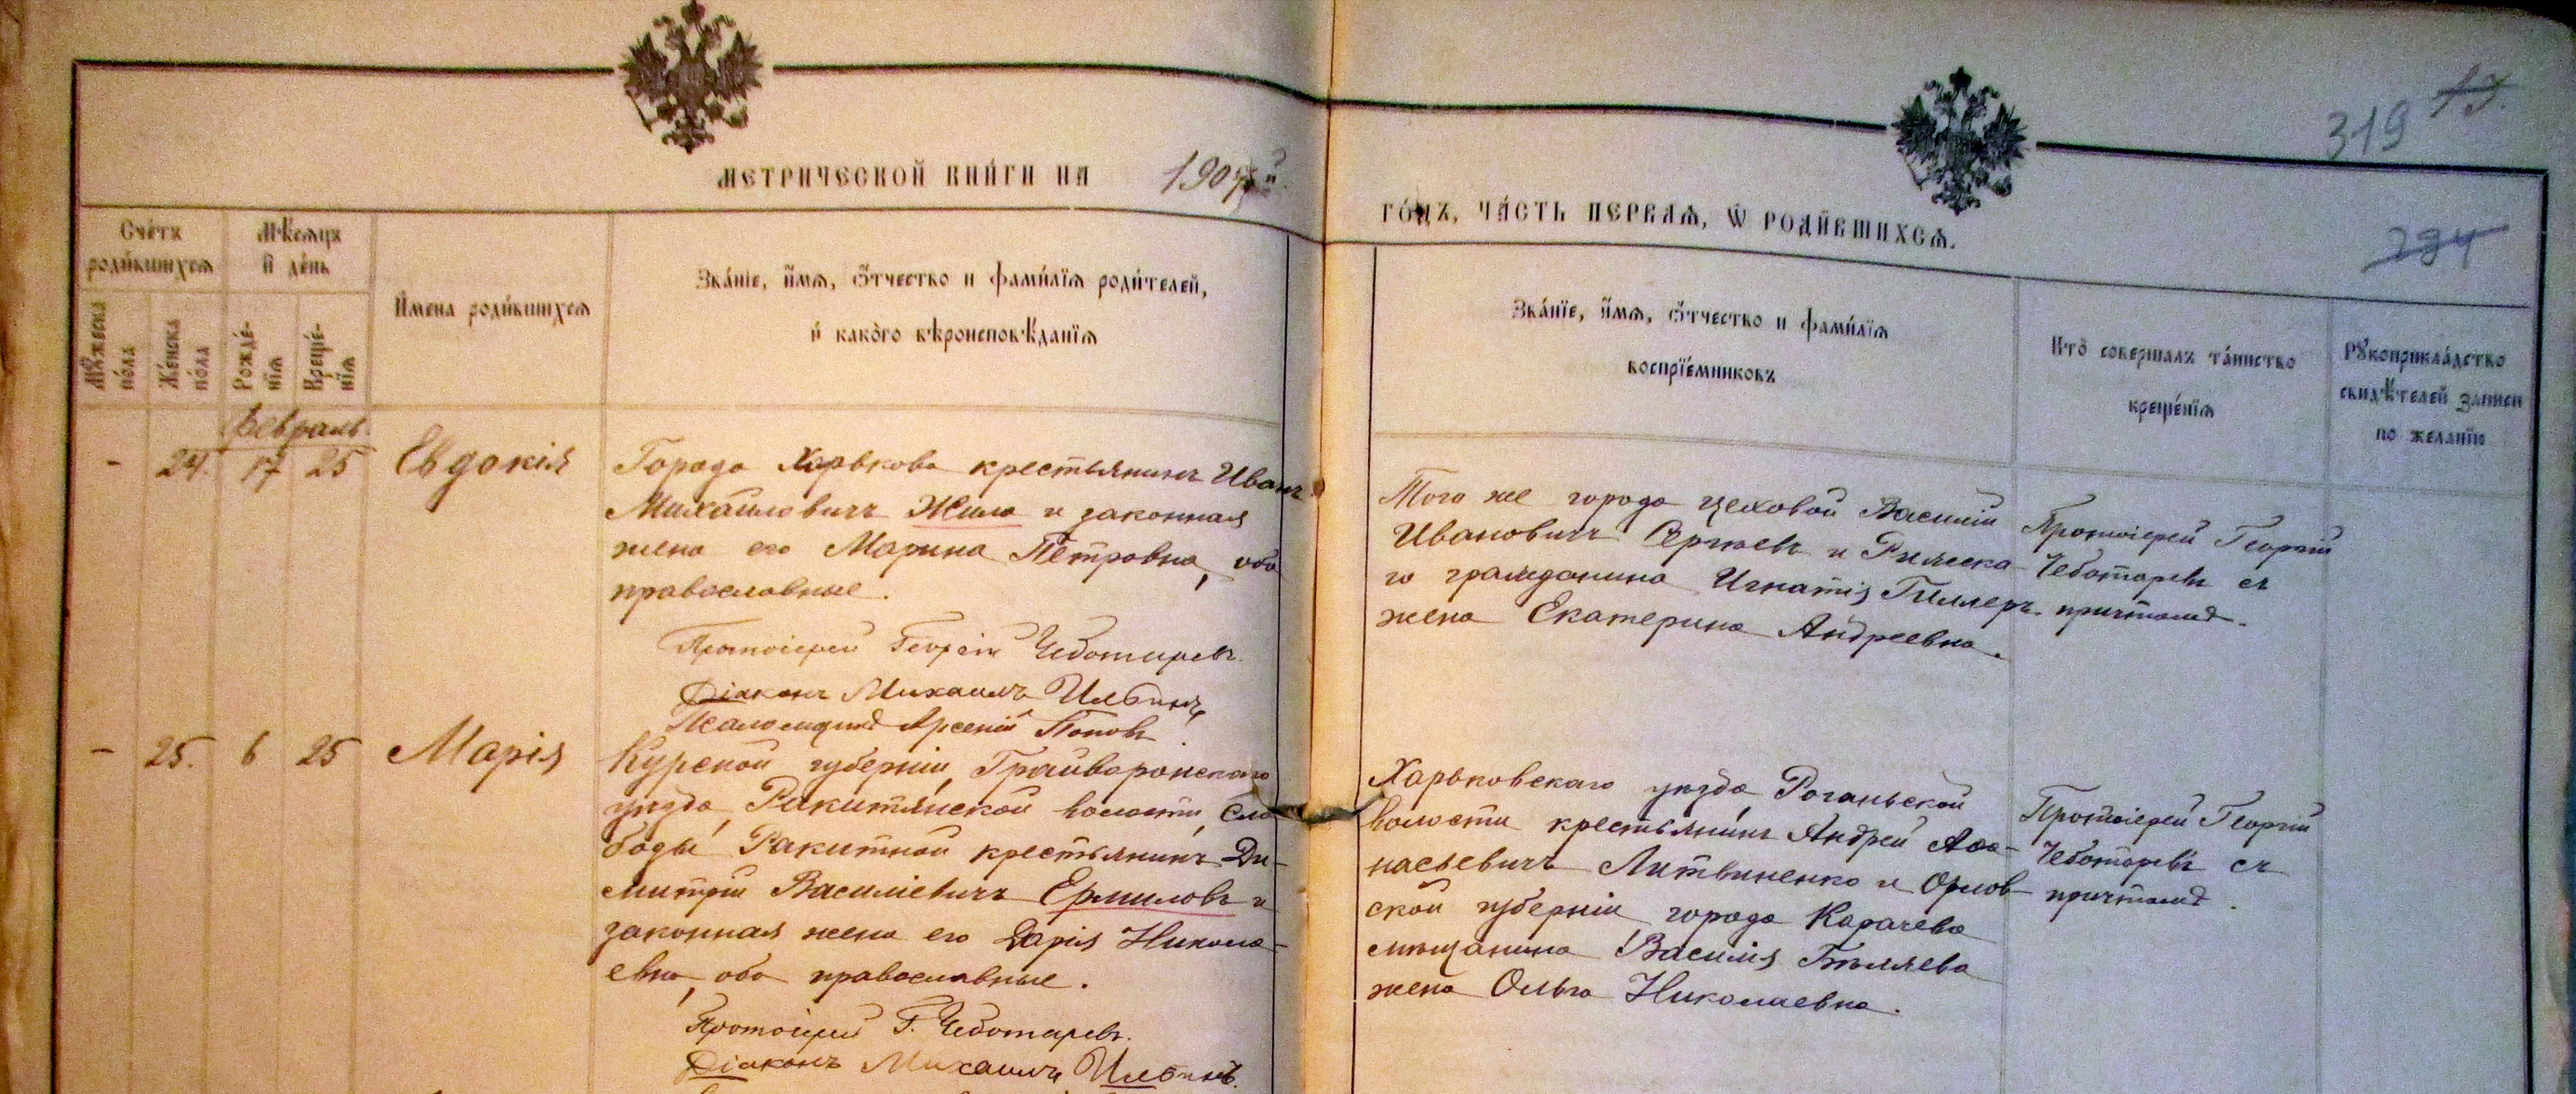 МЕТРИЧЕСКОЙ КНИ́ГИ НА
ГО́ДЪ, ЧА́СТЬ ПЕРВАѦ, Ѡ҆ РОДИ́ВШИХСѦ.
319
13.
294
Сче́тъ роди́вшихсѧ
Мꙋ́жеска по́ла
Же́нска по́ла
Мѣ́сѧцъ и҆ де́нь
Рожде́нїѧ
Креще́нїѧ
И҆́мена роди́вшихсѧ
Зва́нїе, и҆́мѧ, ѻ҆́тчество и фами́лїѧ роди́телей,
и҆ како́го вѣроисповѣ́данїѧ
Зва́нїе, и҆́мѧ, ѻ҆́тчество и фами́лїѧ
воспрїе́мниковъ
Кто̀ совершалъ та́инство
креще́нїѧ
Рꙋкоприкла́дство
свидѣ́телей записи
по желанїю
Февраль.
- 24. 17 25 Евдокія
Города Харькова крестьянинъ Иванъ
Михаиловичъ Жила и законная
жена его Марина Петровна, оба
православные.
Протоіерей Георгій Чеботаревъ.
Діаконъ Михаилъ Ильинъ
Псаломщикъ Арсеній Поповъ
Того же города цеховой Василій
Ивановичъ Сергѣевъ и Рижска-
го гражданина Игнатія Гиллеръ
жена Екатерина Андреевна.
Протоіерей Георгій
Чеботаревъ съ
причтомъ.
- 25. 6 25 Марія
Курской губерніи, Грайворонскаго
уѣзда, Ракитянской волости, сло-
боды Ракитной крестьянинъ Ди-
митрій Василіевичъ Ермиловъ и
законная жена его Дарія Никола-
евна, оба православные.
Протоіерей Г. Чеботаревъ.
Діаконъ Михаилъ Ильинъ.
Харьковскаго уѣзда, Роганьской
волости крестьянинъ Андрей Афа-
насьевичъ Литвиненко и Орлов-
ской губерніи, города Карачева
мѣщанина Василія Бѣляева
жена Ольга Николаевна.
Протоіерей Георгій
Чеботаревъ съ
причтомъ.